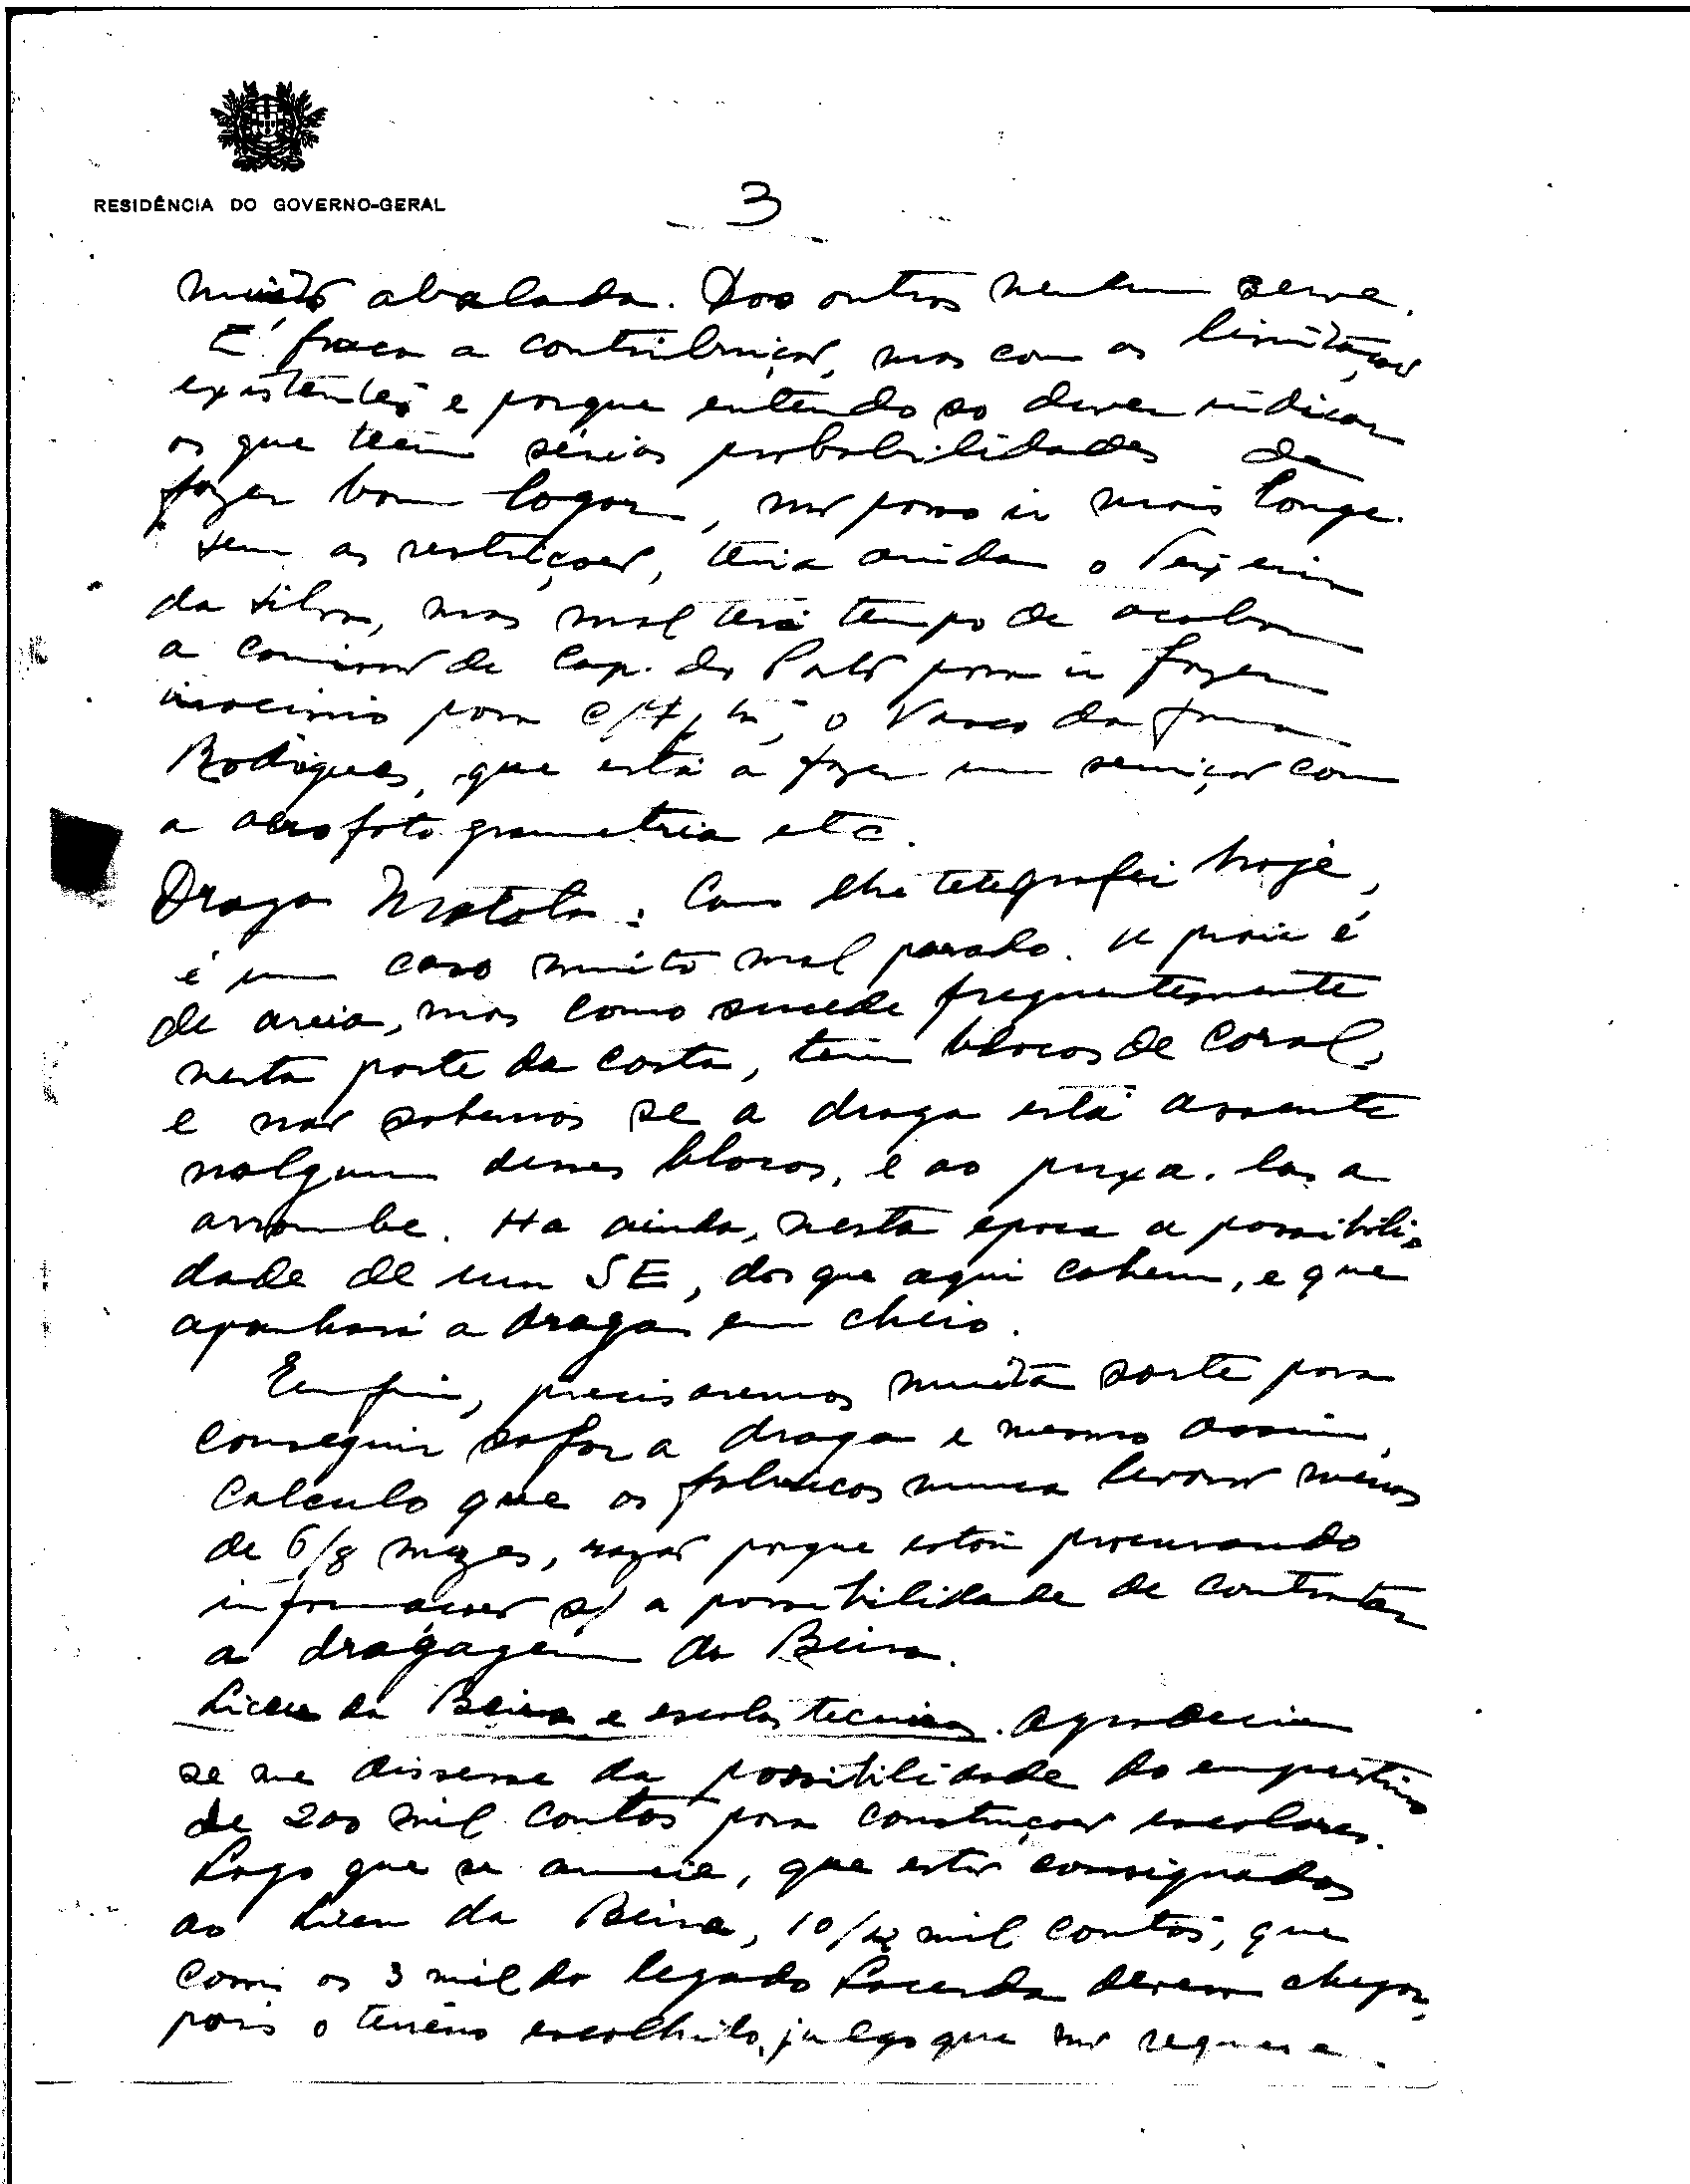 RESIDÊNCIA DO GOVERNO-GERAL
3
muito abalada. Dos outros nenhum serve.
É fraca a contribuição, mas com as limitações
existentes e porque entendo só dever indicar
os que teem sérias probabilidades de
fazer bom logar, não posso ir mais longe.
Sem as restrições, teria ainda o Teixeira
da Silva, mas mal terá tempo de acabar
a comissão de Cap. do Porto para ir fazer
tirocinio para o Vasco da Gama
Rodrigues, que está a fazer um serviço com
a aerofotogrametria etc.
Draga Matola: Como lhe telegrafei hoje,
é um caso muito mal parado. A praia é
de areia, mas como sucede frequentemente
nesta parte da costa, tem blocos de coral,
e não sabemos se a draga está assente
nalgum desses blocos, e ao puxa-la, a
arrombe. Ha ainda, nesta epoca a possibili-
dade de um SE, dos que aqui cahem, e que
apanhará a draga em cheio.
Emfim, precisaremos muita sorte para
conseguir safar a draga e mesmo assim,
calculo que os fabricos nunca levarão menos
de 6/8 mezes, razão porque estou procurando
informações s/ a possibilidade de contratar
a dragagem da Beira.
Liceu da Beira e escolas tecnicas. Agradecia
se me dissesse da possibilidade do emprestimo
de 200 mil contos para construções escolares.
Logo que se anuncie, que estão consignados
ao Liceu da Beira, 10/12 mil contos, que
com os 3 mil do legado Lacerda devem chegar,
pois o terreno escolhido, julgo que não requere